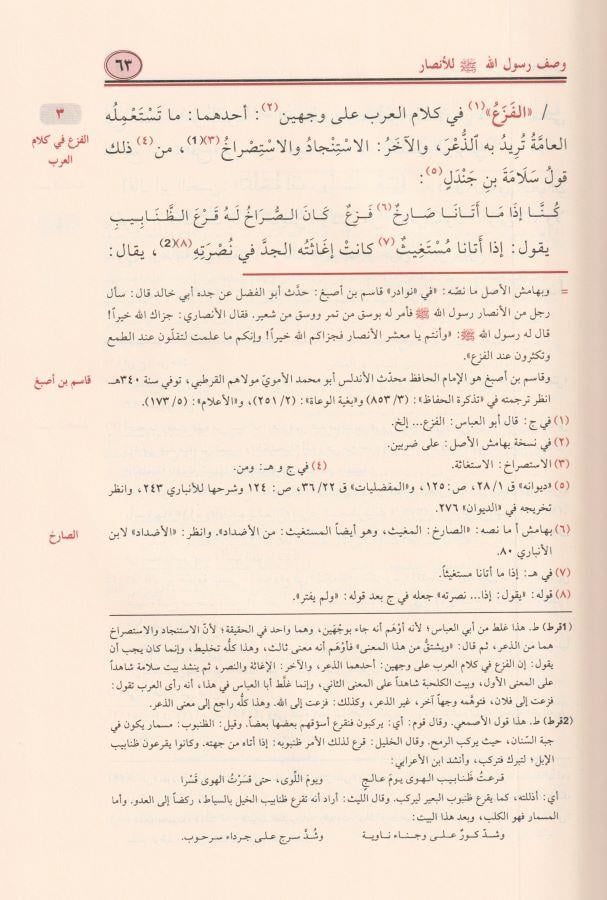 وصف رسول الله ﷺ للأنصار
٦٣
/ «الفَزَعُ»(١) في كلام العرب على وجهين(٢): أحدهما: ما تَسْتَعْمِلُه
٣
الفزع في كلام
العرب
العامَّةُ تُرِيدُ به الذُّعْرَ، والآخَرُ: الاسْتِنْجادُ والاسْتِصْراخُ(٣)(1)، من(٤) ذلك
قولُ سَلَامَةَ بنِ جَنْدَلٍ(٥):
كُنَّا إذَا مَا أَتَانَا صَارِخٌ(٦) فَزِعٌ كَانَ الصُّرَاخُ لَهُ قَرْعَ الظَّنَابِيبِ
يقول: إذا أَتانا مُسْتَغِيثٌ(٧) كانتْ إغاثَتُه الجدَّ في نُصْرَتِهِ(٨)(2)، يقال:
= وبهامش الأصل ما نصّه: «في «نوادر» قاسم بن أصبغ: حدّث أبو الفضل عن جده أبي خالد قال: سأل
رجل من الأنصار رسول الله ﷺ فأمر له بوسق من تمر ووسق من شعير. فقال الأنصاري: جزاك الله خيراً!
قال له رسول الله ﷺ: «وأنتم يا معشر الأنصار فجزاكم الله خيراً! وإنكم ما علمت لتقلّون عند الطمع
وتكثرون عند الفزع».
وقاسم بن أصبغ هو الإمام الحافظ محدّث الأندلس أبو محمد الأمويّ مولاهم القرطبي، توفي سنة ٣٤٠هـ.
قاسم بن أصبغ
انظر ترجمته في «تذكرة الحفاظ»: (٨٥٣/٣) و«بغية الوعاة»: (٢٥١/٢)، و«الأعلام»: (١٧٣/٥).
(١) في ج: قال أبو العباس: الفزع... إلخ.
(٢) في نسخة بهامش الأصل: على ضربين.
(٣) الاستصراخ: الاستغاثة. (٤) في ج و هـ: ومن.
(٥) «ديوانه» ق ٢٨/١، ص: ١٢٥، و«المفضليات» ق ٣٦/٢٢، ص: ١٢٤ وشرحها للأنباري ٢٤٣، وانظر
تخريجه في «الديوان» ٢٧٦.
(٦) بهامش أ ما نصه: «الصارخ: المغيث، وهو أيضاً المستغيث: من الأضداد». وانظر: «الأضداد» لابن
الصارخ
الأنباري ٨٠.
(٧) في هـ: إذا ما أتانا مستغيثاً.
(٨) قوله: «يقول: إذا... نصرته» جعله في ج بعد قوله: «ولم يفتر».
(1قرط) ط. هذا غلط من أبي العباس؛ لأنه أوْهَم أنه جاء بوجْهَين، وهما واحد في الحقيقة؛ لأنّ الاستنجاد والاستصراخ
هما من الذعر، ثم قال: «ويشتقّ من هذا المعنى» فأوْهَم أنه معنى ثالث، وهذا كلُّه تخليط، وإنما كان يجب أن
يقول: إن الفزع في كلام العرب على وجهين: أحدهما الذعر، والآخر: الإغاثة والنصر، ثم ينشد بيت سلامة شاهداً
على المعنى الأول، وبيت الكلحبة شاهداً على المعنى الثاني، وإنما غلَّط أبا العباس في هذا، أنه رأى العرب تقول:
فزعت إلى فلان، فتوهَّمه وجهاً آخر، غير الذعر، وكذلك: فزعت إلى الله. وهذا كله راجع إلى معنى الذعر.
(2قرط) ط. هذا قول الأصمعي. وقال قوم: أي: يركبون فنقرع أسؤقهم بعضها بعضاً. وقيل: الظنبوب: مسمار يكون في
جبة السِّنان، حيث يركب الرمح. وقال الخليل: قرع لذلك الأمر ظنبوبه: إذا أتاه من جهته. وكانوا يقرعون ظنابيب
الإبل؛ لتبرك فتركب، وأنشد ابن الأعرابي:
قرعتُ ظنابيب الهوى يومَ عالجٍ ويومَ اللِّوى، حتى قسَرْتُ الهوى قَسْرا
أي: أذللته، كما يقرع ظنبوب البعير ليركب. وقال الليث: أراد أنه تقرع ظنابيب الخيل بالسياط، ركضاً إلى العدو. وأما
المسمار فهو الكلب، وبعد هذا البيت:
وشدّ كورٌ على وجناء ناوية وشُدَّ سرج على جرداء سرحوب.